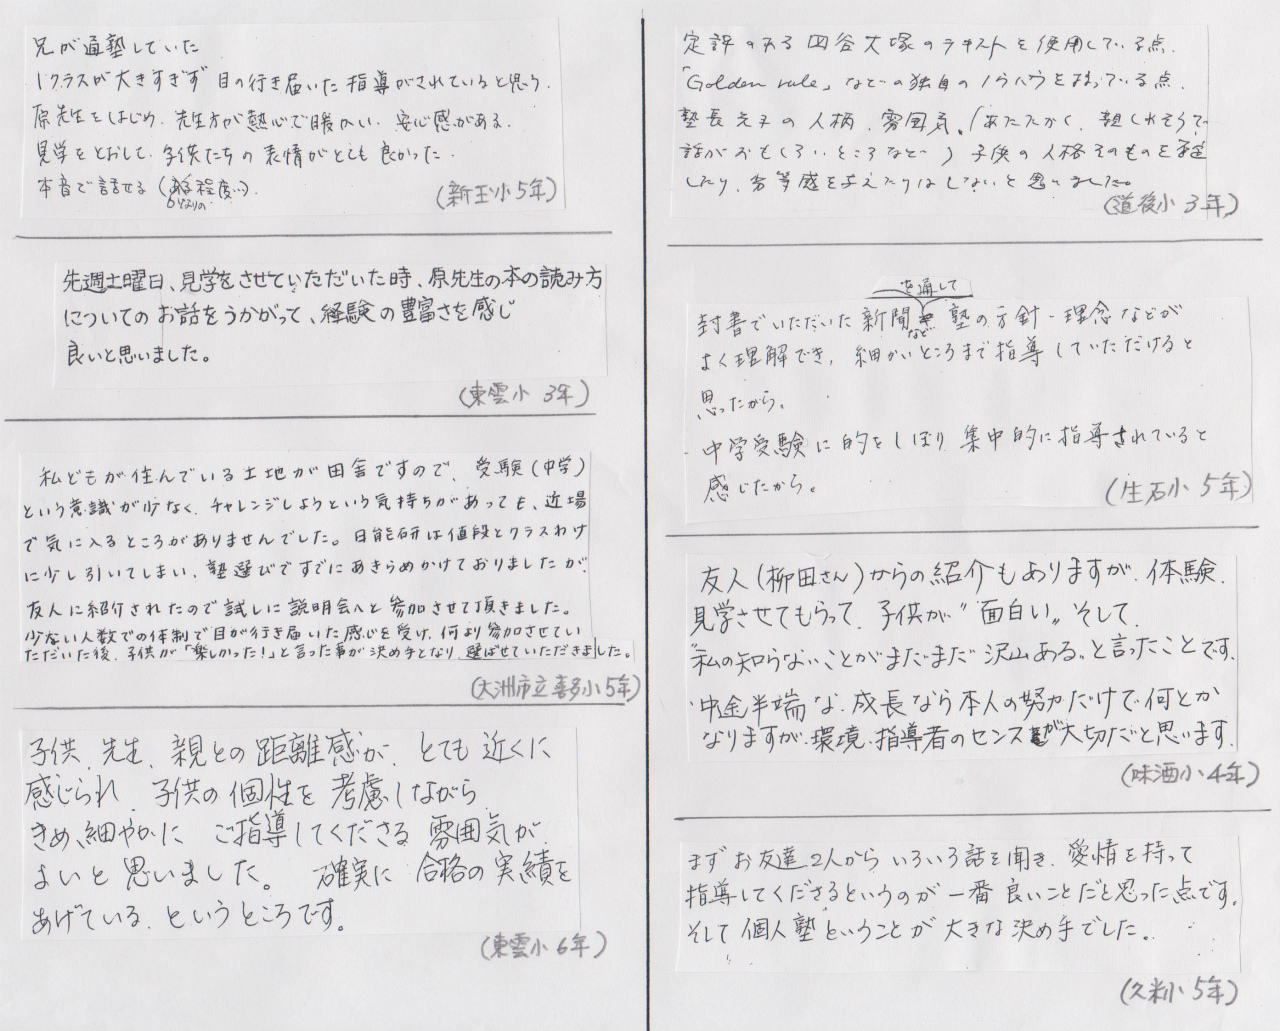 兄が通塾していた
1クラスが大きすぎず 目の行き届いた指導がされていると思う.
原先生をはじめ、先生方が熱心で暖かい. 安心感がある.
見学をとおして、子供たちの表情がとても良かった.
本音で話せる (ある程度い).
かなりの
(新玉小5年)
先週土曜日、見学をさせていただいた時、原先生の本の読み方
についてのお話をうかがって、経験の豊富さを感じ
良いと思いました。
(東雲小 3年)
私どもが住んでいる土地が田舎ですので、受験(中学)
という意識が少なく、チャレンジしようという気持ちがあっても、近場
で気に入るところがありませんでした。日能研は値段とクラスわけ
に少し引いてしまい、塾選びですでにあきらめかけておりましたが、
友人に紹介されたので試しに説明会へと参加させて頂きました。
少ない人数での体制で目が行き届いた感じを受け、何より参加させてい
ただいた後、子供が「楽しかった!」と言った事が決め手となり、選ばせていただきました。
(大洲市立喜多小5年)
子供、先生、親との距離感が、とても近くに
感じられ、子供の個性を考慮しながら
きめ細やかに ご指導してくださる雰囲気が
よいと思いました。 確実に合格の実績を
あげている、というところです。
(東雲小6年)
定評のある四谷大塚のテキストを使用している点.
「Golden rule」などの独自のノウハウを持っている点.
塾長先生の人柄、雰囲気。(あたたかく、親しれそうで
話がおもしろいところなど) 子供の人格そのものを否定
したり、劣等感を与えたりはしないと思いました。
(道後小 3年)
を通して
封書でいただいた新聞など 塾の方針・理念などが
よく理解でき、細かいところまで指導していただけると
思ったから。
・中学受験に的をしぼり 集中的に指導されていると
感じたから。
(生石小 5年)
友人(柳田さん)からの紹介もありますが、体験、
見学させてもらって、子供が〝面白い〟そして、
〝私の知らないことがまだまだ沢山ある〟と言ったことです.
・中途半端な成長なら本人の努力だけで何とか
なりますが、環境、指導者のセンスが大切だと思います.
(味酒小4年)
まずお友達2人からいろいろ話を聞き、愛情を持って
指導してくださるというのが一番良いことだと思った点です。
そして個人塾ということが大きな決め手でした。
(久米小5年)